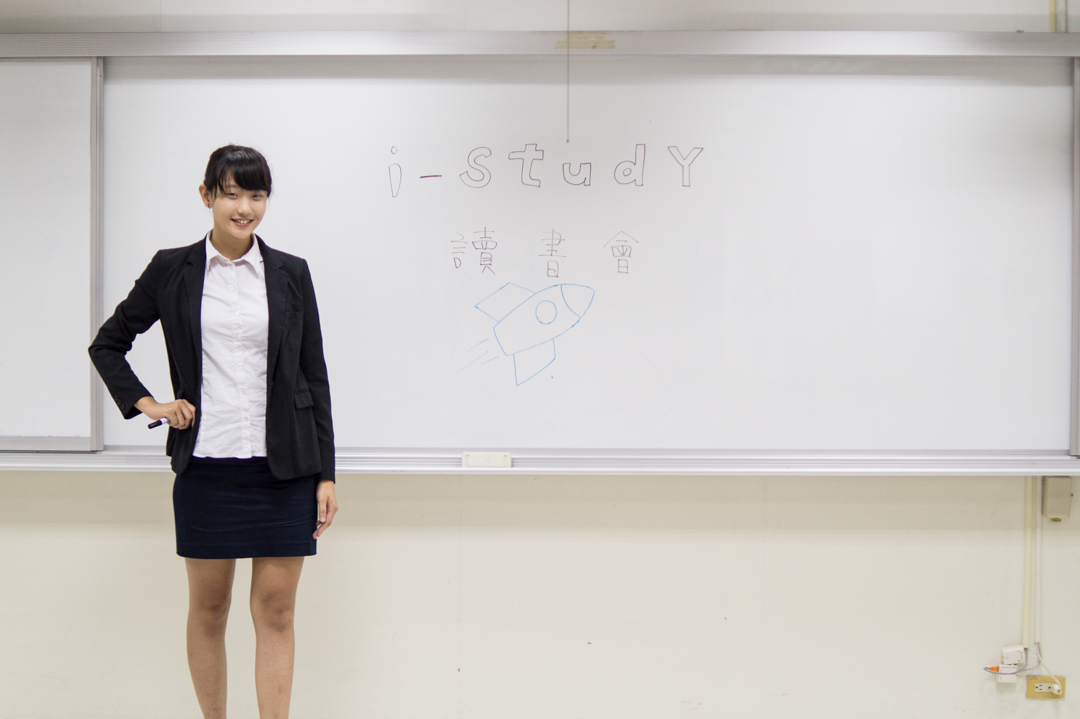 i-StudY
讀書會